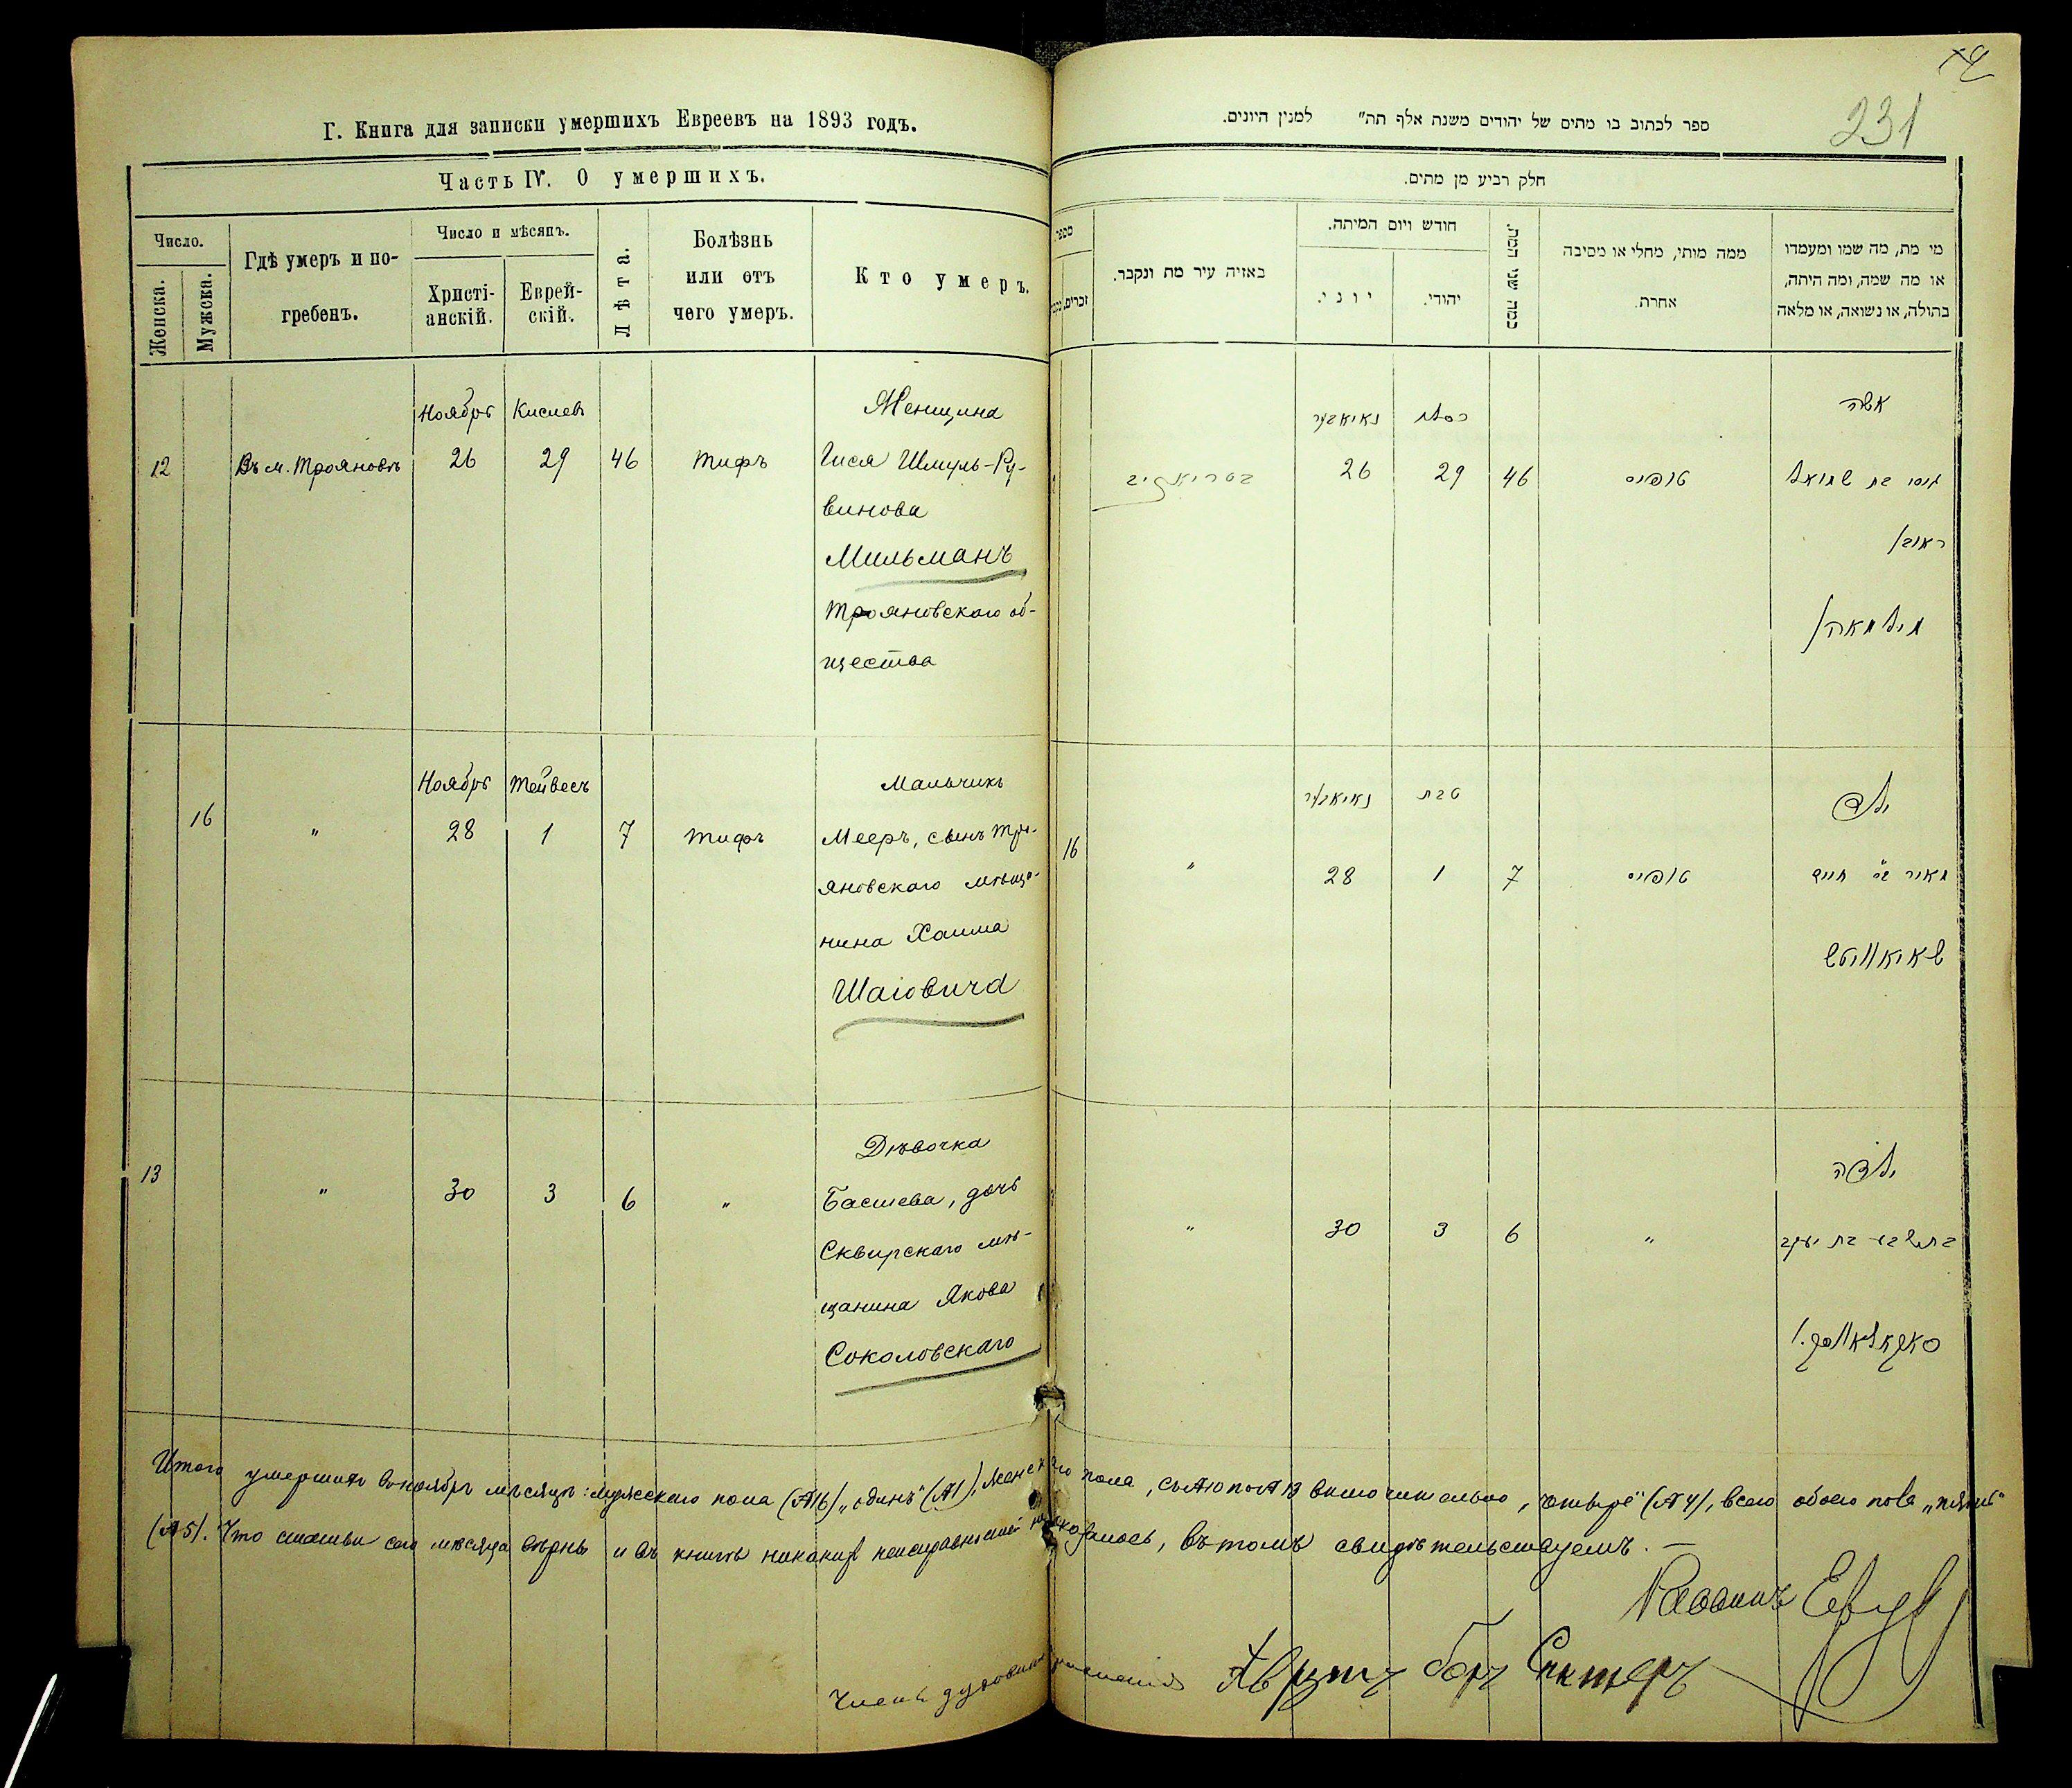 Г. Книга для записки умершихъ Евреевъ на 1893 годъ.
Часть IV. О умершихъ.
Число.
Женска.
Мужска.
Гдѣ умеръ и по-
гребенъ.
Число и мѣсяцъ.
Христі-
анскій.
Еврей-
скій.
Лѣта.
Болѣзнь
или отъ
чего умеръ.
Кто умеръ.
Ноябрь Кислевъ Женщина
12 Въ м. Трояновѣ 26 29 46 Тифъ Гися Шмуль-Ру-
винова
Мильманъ
Трояновскаго об-
щества
Ноябрь Тейвесъ Мальчикъ
16 " 28 1 7 Тифъ Мееръ, сынъ Тро-
яновскаго мѣща-
нина Хаима
Шаіовича
Дѣвочка
13 " 30 3 6 " Басшева, дочь
Сквирскаго мѣ-
щанина Якова
Соколовскаго
231
ספר לכתוב בו מתים של יהודים משנת אלף תת" למנין היונים.
חלק רביע מן מתים.
מספר
זכרים
באזיה עיר מת ונקבר.
חודש ויום המיתה.
יוני.
יהודי.
כמה שני המת.
ממה מותי, מחלי או מסיבה
אחרת.
מי מת, מה שמו ומעמדו
או מה שמה, ומה היתה,
בתולה, או נשואה, או מלאה
נאיאבער כסלו אשה
26 29 46 טופיס גיסי בת שמואל
ראובן
מילמאן
נאיאבער טבת ילד
16 " 28 1 7 טופיס מאיר ב"ר חיים
שאיאוויטש
ילדה
" 30 3 6 " בתשבע בת יעקב
סאקאלאווסקי
Итого умершихъ въ ноябрѣ мѣсяцѣ: мужескаго пола (№16) „одинъ" (№1), женскаго пола, съ №10 по №13 включительно, „четыре" (№4), всего обоего пола „пять"
(№5). Что статьи сего мѣсяца вѣрны и въ книгѣ никакихъ неисправностей не оказалось, въ томъ свидѣтельствуемъ. —
Раввинъ
Членъ духовнаго правленія